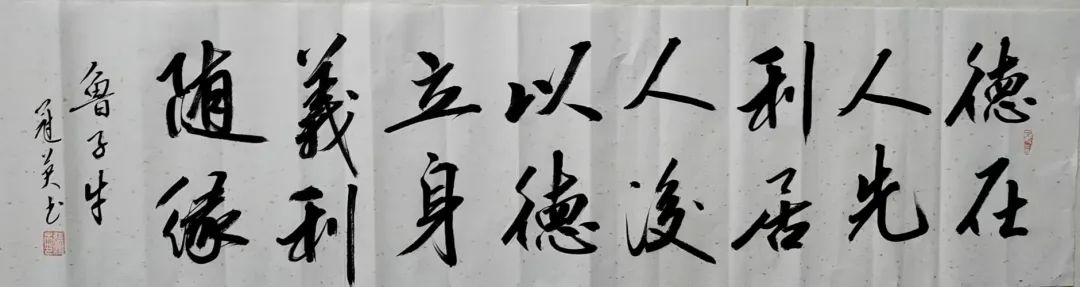 德在
人先
利居
人後
以德
立身
義利
随缘
魯子牛
冠英书